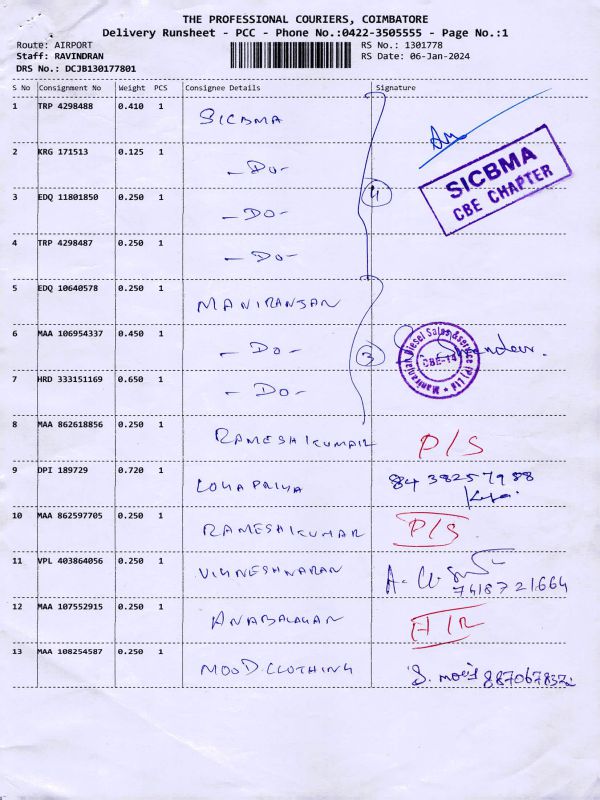 THE PROFESSIONAL COURIERS, COIMBATORE
Delivery Runsheet - PCC - Phone No.:0422-3505555 - Page No.:1
Route: AIRPORT RS No.: 1301778
Staff: RAVINDRAN RS Date: 06-Jan-2024
DRS No.: DCJB130177801
S No Consignment No Weight PCS Consignee Details Signature
1 TRP 4298488 0.410 1 SICBMA
2 KRG 171513 0.125 1 - DO -
3 EDQ 11801850 0.250 1 - DO - 4
SICBMA
CBE CHAPTER
4 TRP 4298487 0.250 1 - DO -
5 EDQ 10640578 0.250 1 MANIRANJAN
6 MAA 106954337 0.450 1 - DO - 3
Maniranjan Diesel Sales & Service (P) Ltd
CBE-14
7 HRD 333151169 0.650 1 - DO -
8 MAA 862618856 0.250 1 RAMESHKUMAR P/S
9 DPI 189729 0.720 1 LOHAPRIYA 8438257988
10 MAA 862597705 0.250 1 RAMESHKUMAR P/S
11 VPL 403864056 0.250 1 VIGNESHWARAN
7418721664
12 MAA 107552915 0.250 1 ANABALAGAN
13 MAA 108254587 0.250 1 MOOD CLOTHING